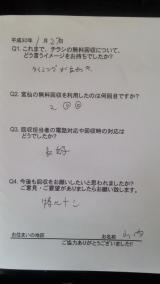 平成30年 1月
Q1. これまで、チラシの無料回収について、
どう言うイメージをお持ちでしたか?
Q2. 宮仙の無料回収を利用したのは何回目ですか?
2
Q3. 回収担当者の電話対応や回収時の対応は
どうでしたか?
良好
Q4. 今後も回収をお願いしたいと思われましたか?
ご意見・ご要望がありましたらお願い致します。
特になし
お住まいの地区
お名前
ご協力ありがとうございました!!